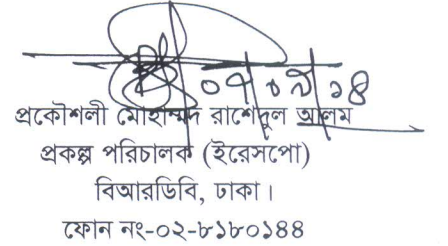 ০৭/০৯/১৪
প্রকৌশলী মোহাম্মদ রাশেদুল আলম
প্রকল্প পরিচালক (ইরেসপো)
বিআরডিবি, ঢাকা।
ফোন নং-০২-৮১৮০১৪৪